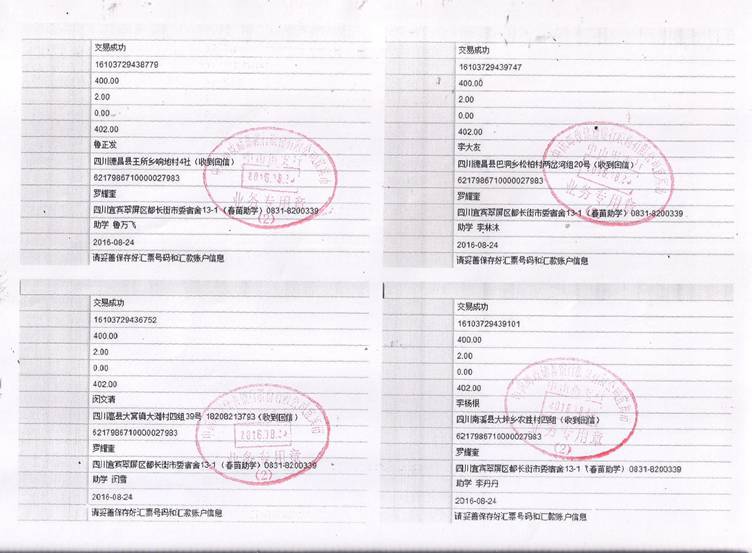 交易成功
16103729438779
400.00
2.00
0.00
402.00
鲁正发
四川德昌县王所乡响地村4社（收到回信）
6217986710000027983
罗耀奎
四川宜宾翠屏区都长街市委宿舍13-1（春苗助学）0831-8200339
助学 鲁万飞
2016-08-24
请妥善保存好汇票号码和汇款账户信息
2016.08.24
业务专用章
(2)
交易成功
16103729439747
400.00
2.00
0.00
402.00
李大友
四川德昌县巴洞乡松柏村两岔河组20号（收到回信）
6217986710000027983
罗耀奎
四川宜宾翠屏区都长街市委宿舍13-1（春苗助学）0831-8200339
助学 李林沐
2016-08-24
请妥善保存好汇票号码和汇款账户信息
业务专用章
(2)
交易成功
16103729436752
400.00
2.00
0.00
402.00
闵文清
四川高县大窝镇大湾村四组39号 18208213793（收到回信）
6217986710000027983
罗耀奎
四川宜宾翠屏区都长街市委宿舍13-1（春苗助学）0831-8200339
助学 闵雪
2016-08-24
请妥善保存好汇票号码和汇款账户信息
2016.08.24
业务专用章
(2)
交易成功
16103729439101
400.00
2.00
0.00
402.00
李杨根
四川南溪县大坪乡农胜村四组（收到回信）
6217986710000027983
罗耀奎
四川宜宾翠屏区都长街市委宿舍13-1（春苗助学）0831-8200339
助学 李丹丹
2016-08-24
请妥善保存好汇票号码和汇款账户信息
2016.08.24
业务专用章
(2)